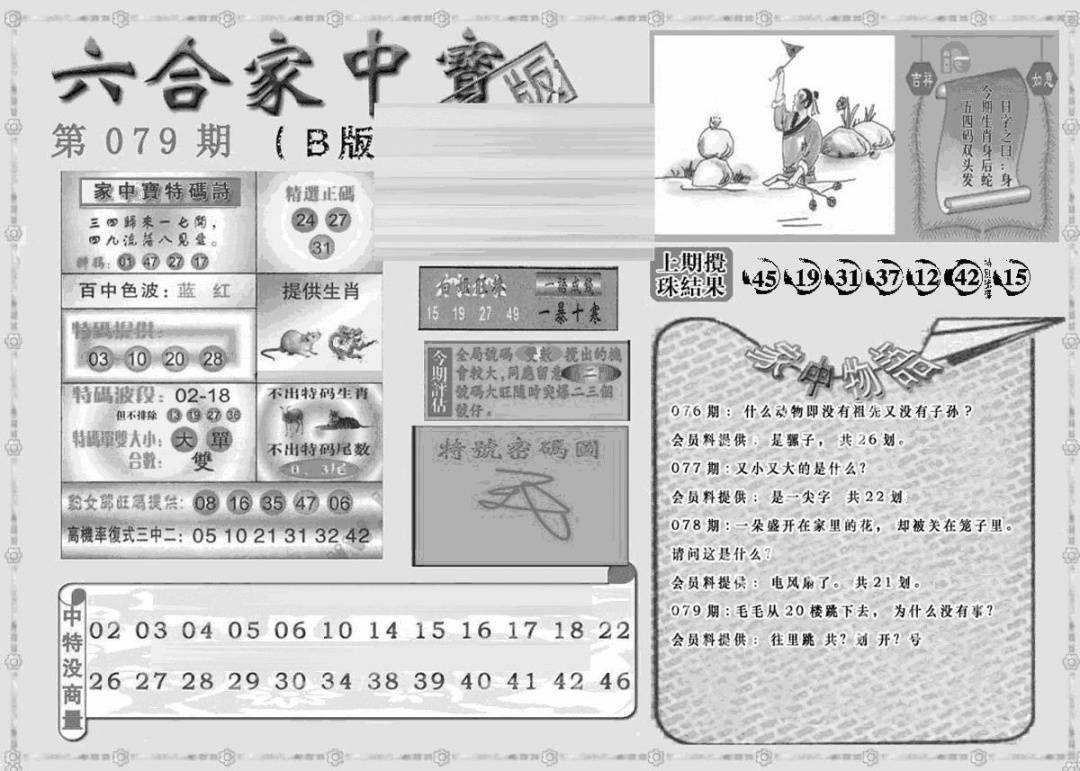 六合家中寶
版
第079期 (B版
家中寶特碼詩
三四歸來一七開，
四九流落八見疊。
01 47 27 17
精選正碼
24 27
31
百中色波：蓝 红
提供生肖
特碼提供：
03 10 20 28
特碼波段：02-18
但不排除 13 19 27 36
特碼單雙大小：大 單
合數：雙
不出特码生肖
不出特码尾数
0、3尾
旺碼提供：08 16 35 47 06
高機率復式三中二：05 10 21 31 32 42
15 19 27 49
一語成讖
一暴十寒
今期評估
全局號碼 雙數 攪出的機
會較大，同應留意 二
號碼大旺隨時突爆二三個
號仔。
特號密碼圖
吉祥
如意
日字之曰：身
今期生肖身后蛇
五四码双头发
上期攪
珠結果
45 19 31 37 12 42 特別號碼 15
家中物語
076期：什么动物即没有祖先又没有子孙？
会员料提供：是骡子， 共26划。
077期：又小又大的是什么？
会员料提供：是一尖字 共22划
078期：一朵盛开在家里的花， 却被关在笼子里。
请问这是什么？
会员料提供： 电风扇了。 共21划。
079期：毛毛从20楼跳下去， 为什么没有事？
会员料提供： 往里跳 共？划 开？号
中特没商量
02 03 04 05 06 10 14 15 16 17 18 22
26 27 28 29 30 34 38 39 40 41 42 46